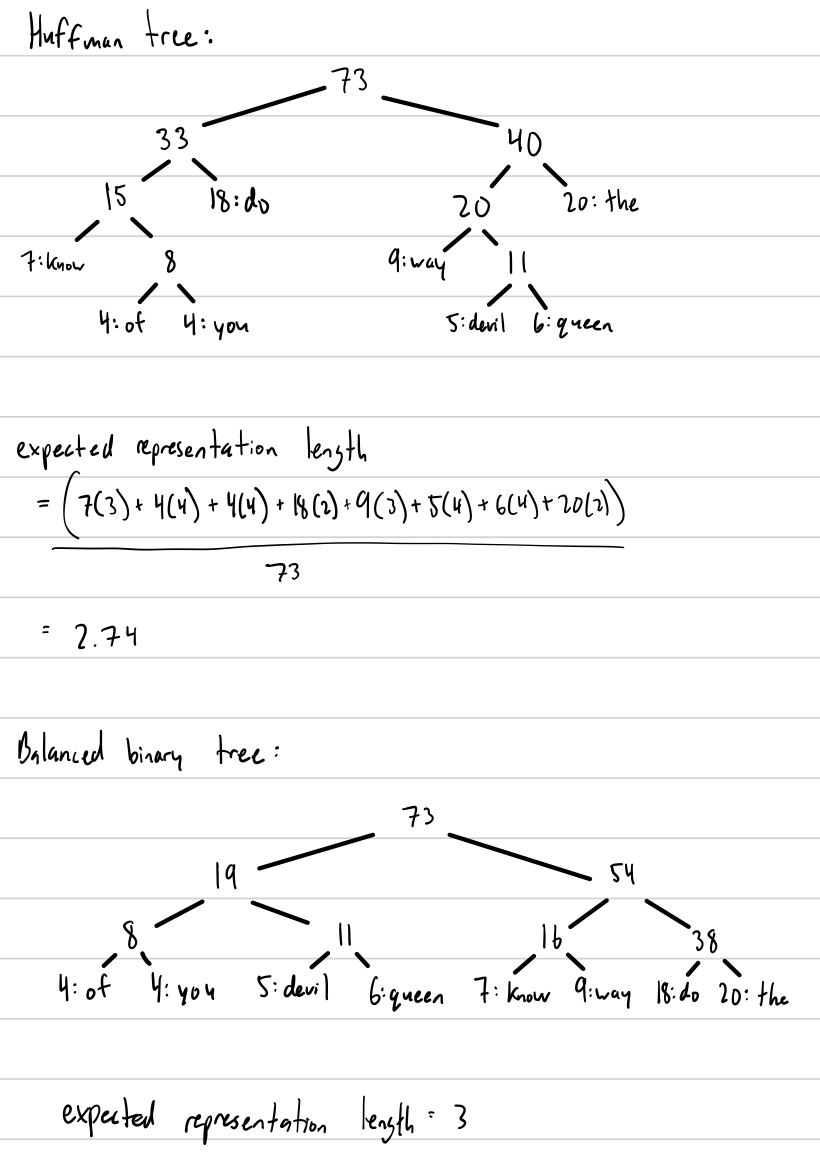 Huffman tree:
73
33 40
15 18:do 20 20:the
7:know 8 9:way 11
4:of 4:you 5:devil 6:queen
expected representation length
= (7(3) + 4(4) + 4(4) + 18(2) + 9(3) + 5(4) + 6(4) + 20(2))
73
= 2.74
Balanced binary tree:
73
19 54
8 11 16 38
4:of 4:you 5:devil 6:queen 7:know 9:way 18:do 20:the
expected representation length = 3